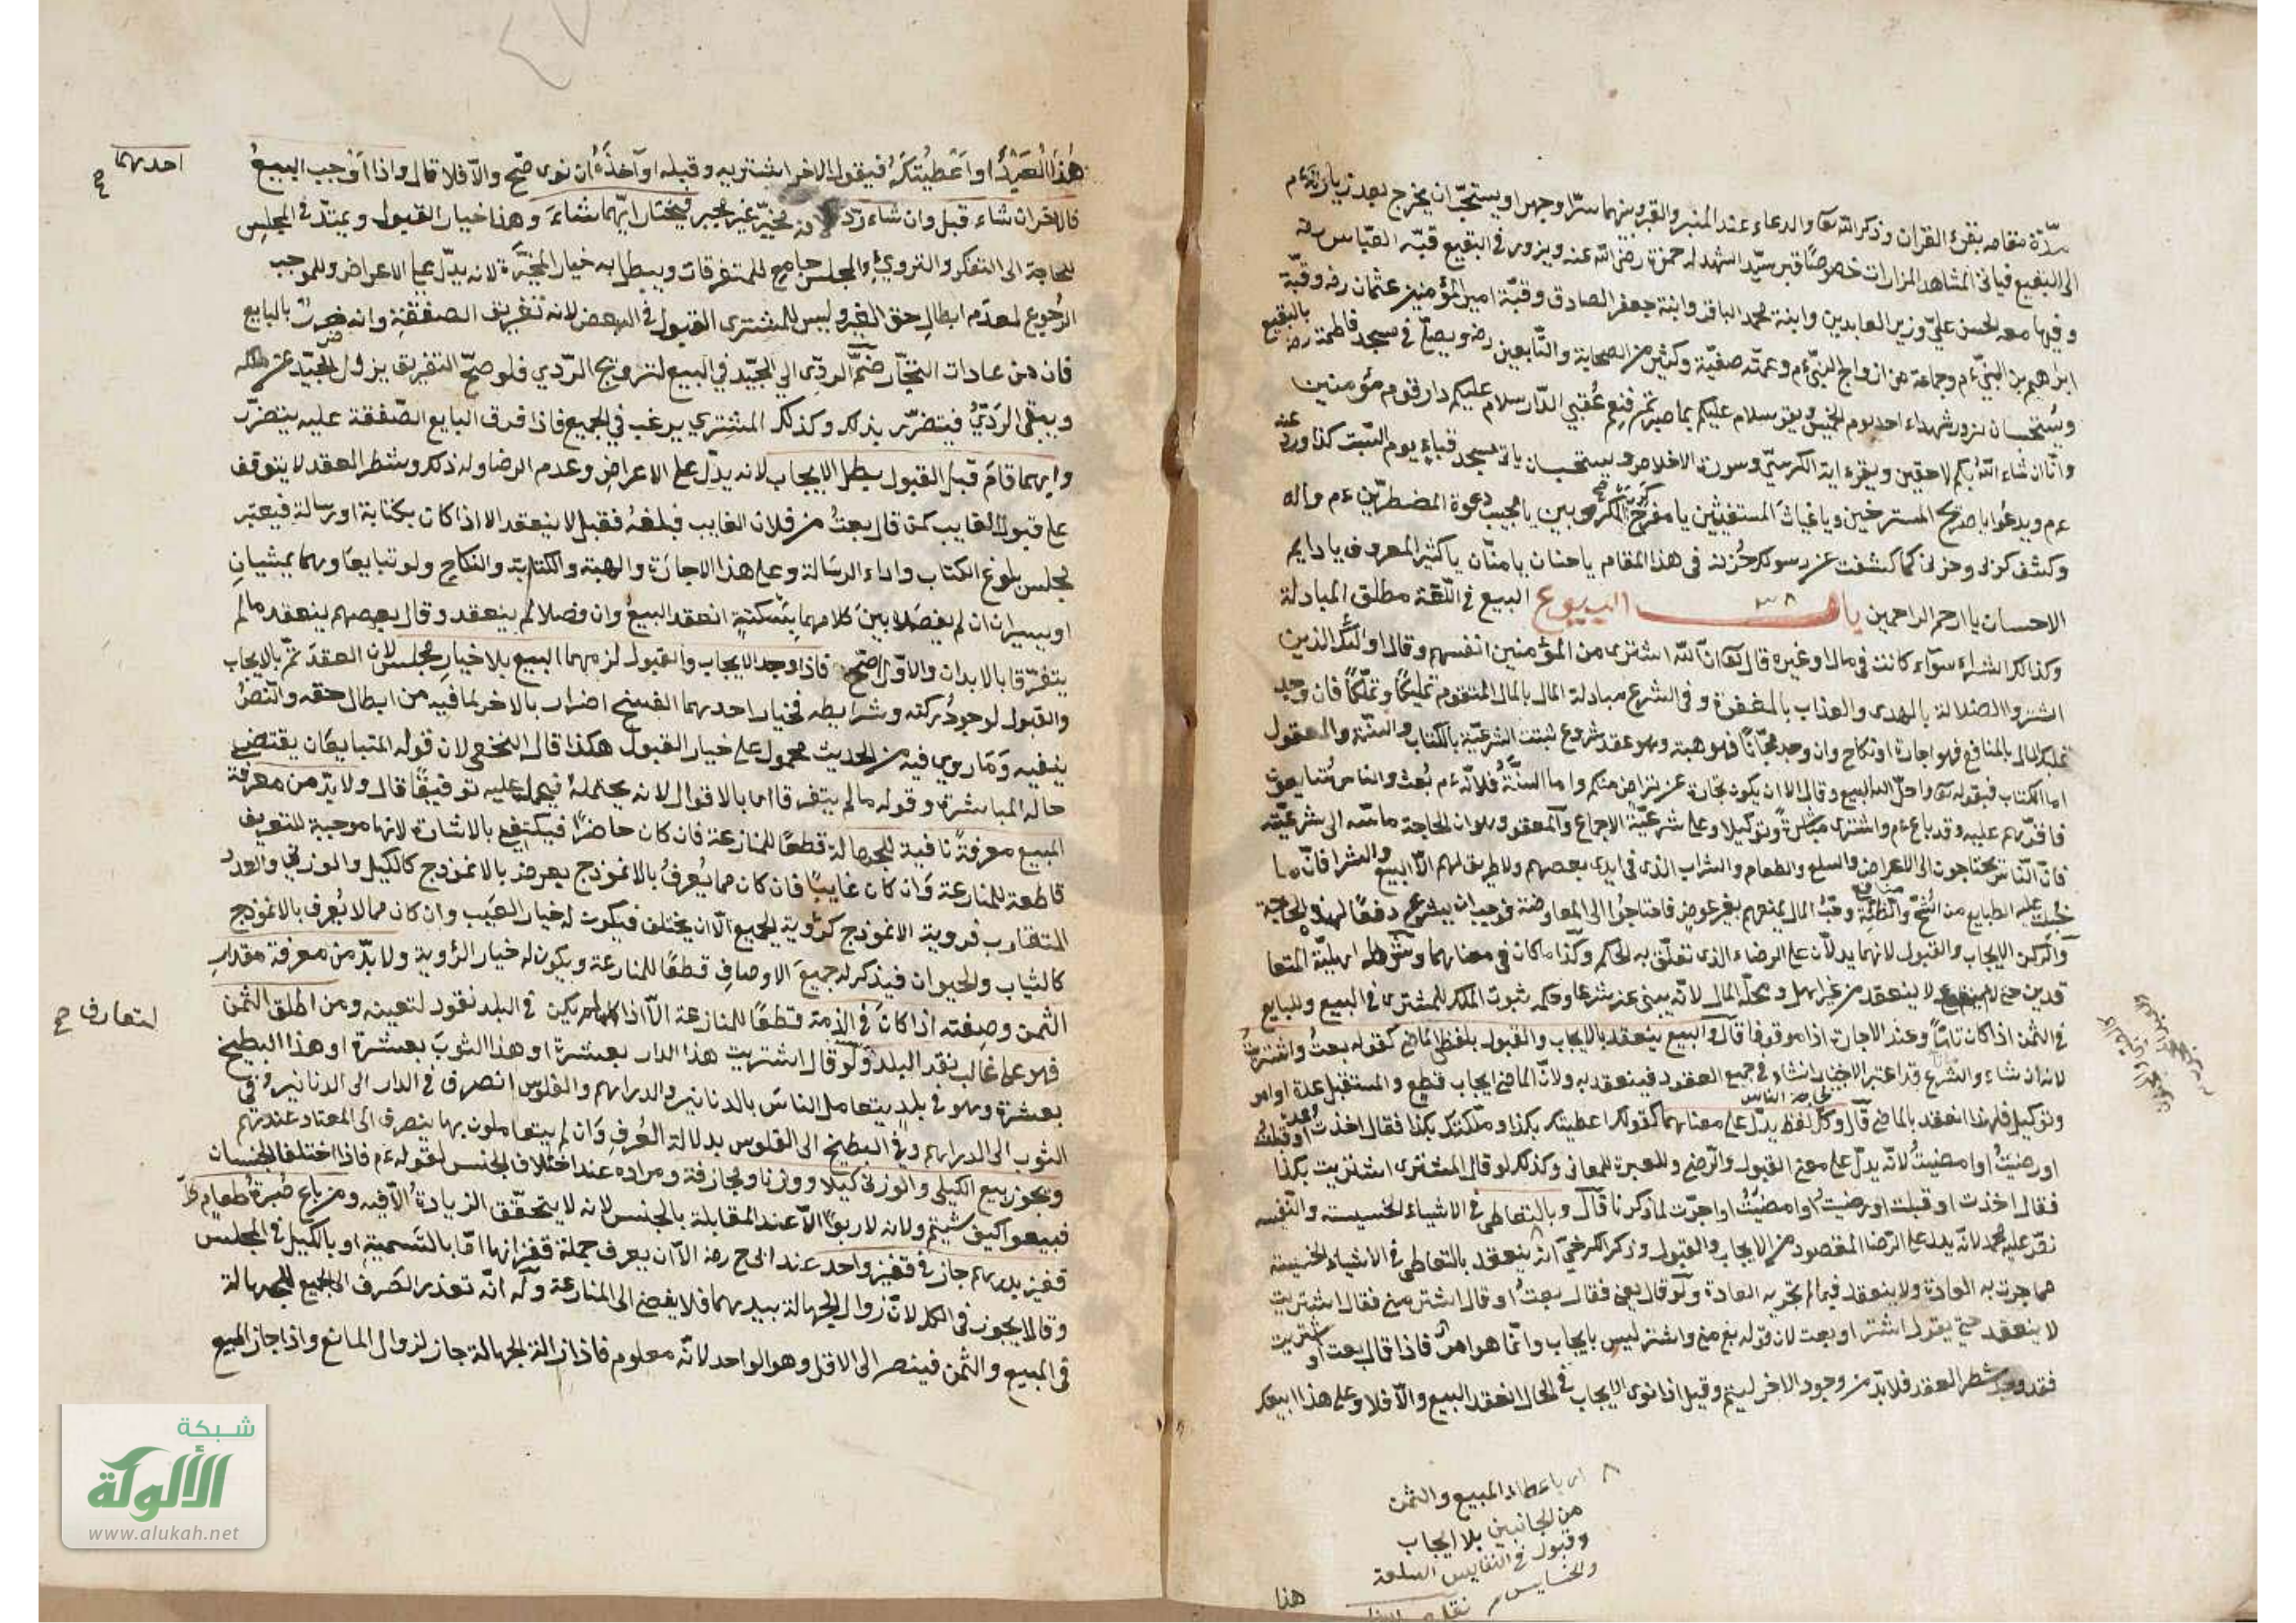 مدّة مقامه بقرءة القران وذكر الله تعا والدعاء عند المنبر والقبر وبينهما سرّا وجهرا ويستحبّ ان يخرج بعد زيارته ءم
الى البقيع فيأتى المشاهد المزارات خصوصًا قبر سيّد الشهداء حمزة رضى الله عنه ويزور فى البقيع قبّة العبّاس رضه
وفيها معه الحسن بن عليّ وزين العابدين وابنه محمد الباقر وابنه جعفر الصادق وقبّة امير المؤمنين عثمان رضه وقبّة
ابراهيم بن النبيّ ءم وجماعة من ازواج النبيّ ءم وعمته صفيّة وكثير من الصحابة والتّابعين رضه ويصلّي فى مسجد فاطمة رضه بالبقيع
ويُستحسان نزور شهداء احد يوم الخميس ويقو سلام عليكم بما صبرتم فنعم عقبي الدّار سلام عليكم دار قوم مؤمنين
وانّا ان شاء اللّه بكم لاحقين ويقرء اية الكرسيّ وسورة الاخلاص ويستحسان ياتى مسجد قباء يوم السّبت كذا ورد عنه
ءم ويدعُوا يا صريح المسترخين ويا غياث المستغيثين يا مفرّج كرب المكروبين يا مجيب دعوة المضطرّين ءم واله
وكشف كربى وحزنى كما كشفت عن رسولك حُزنه فى هذا المقام يا حنان يا منّان يا كثير المعروف يا دايم
الاحسان يا ارحم الراحمين باب البيوع البيع فى اللّغة مطلق المبادلة
وكذالك الشراء سوآء كانت فى مال او غيره قال تعا انّ اللّه اشترى من المؤمنين انفسهم وقال اولئك الذين
اشتروا الضلالة بالهدى والعذاب بالمغفرة وفى الشرع مبادلة المال بالمال المتقوم تمليكًا وتملّكًا فان وجد
تمليك المال بالمنافع فهو اجارة او نكاح وان وجد مجّانًا فهو هبة وهو عقد مشروع ثبتت الشرعيّة بالكتاب والسنّة والمعقول
اما الكتاب فبقوله تعا واحلّ الله البيع وقال الا ان يكون تجارة عن تراض منكم واما السنّة فلانّه ءم بُعث والناس يتبايعون
فاقرّهم عليه وقد باع ءم واشترى مباشرةً وتوكيلا وعلى شرعيّته الاجماع والمعقول وهو ان الحاجة ماسّه الى شرعيّته
فان النّاس يحتاجون الى الاعراض والسلع والطعام والشراب الذى فى ايدى بعضهم ولا طريق لهم الّا البيع والشرا فانّ ما
جُبلت عليه الطبايع من الشحّ والظنّة وحبّ المال يمنعهم بغير عوض فاحتاجُوا الى المعاوضة فوجب ان يشرع دفعًا لهذه الحاجة
والركن الايجاب والقبول لانهما يدلّان على الرضاء الذى تعلّق به الحكم وكذا ما كان فى معناهما وشرطه اهليّة المتعا
قدين حتى لا ينعقد من غير اهل ومحلّه المال لانّه يبنى عنه شرعا وحكمه ثبوت الملك للمشترى فى البيع وللبايع
فى الثمن اذا كان تامًّا وعند الاجازة اذا موقوفا قال والبيع ينعقد بالايجاب والقبول بلفظى الماضى كقوله بعتُ واشتريتُ
لانه انشاء والشرع قد اعتبر الاخبار انشاء فى جميع العقود فينعقد به ولانّ الماضى ايجاب قطع والمستقبل عدة او امر
وتوكيل فلهذا انعقد بالماضى قال وكلّ لفظ يدلّ على معناهما كقولك اعطيتك بكذا وملكتك بكذا فقال اخذتُ او قبلتُ
او رضيتُ او امضيتُ لانّه يدلّ على معنى القبول والرّضى والعبرة للمعانى وكذلك لو قال المشترى اشتريت بكذا
فقال اخذت او قبلت او رضيتُ او امضيتُ او اجزت لما ذكرنا قال وبالتعاطى فى الاشياء الخسيسة والنّفيسة
نصّ عليه محمد لانّه يدل على الرّضا المقصود من الايجاب والقبول وذكر الكرخيّ انّه ينعقد بالتعاطى فى الاشياء الخسيسة
مما جرت به العادة ولا ينعقد فيما لم تجر به العادة ولو قال بعنى فقال بعتُ او قال اشتر منى فقال اشتريت
لا ينعقد حتى يقول اشتر او بعت لان قوله بع منى واشتر ليس بايجاب وانّما هو امر فاذا قال بعت او اشتريت
فقد وجد شطر العقد فلا بدّ من وجود الاخر ليتم وقيل اذا نوى الايجاب فى الحال انعقد البيع والّا فلا وعلى هذا ابيعك
اى باعطاء المبيع والثمن
من الجانبين بلا ايجاب
وقبول فى النفايس السلعة
والخسايس
هذا
هٰذا العَبْدَ او اَعْطيتُكَهُ فيقول الاخر اشتريه وقبله او آخذهُ ان نوى صحّ والّا فلا قال واذا اَوْجب البيعُ
احدهما صح
فالاخر ان شاء قبل وان شاء ردّ لانه مخيّر غير مجبر فيختار ايّهما شاءَ وهذا خيار القبول ويمتدّ فى المجلس
للحاجة الى التفكر والتروي والمجلس جامع للمتفرقات ويبطل به خيار المخيّرة لانه يدلّ على الاعراض وللموجب
الرّجوع لعدم ابطال حق الغير وليس للمشترى القبول فى البعض لانه تفريق الصفقة وانه ضرر بالبايع
فان من عادات التجّار ضمّ الردّى الى الجيّد فى البيع لترويج الردّي فلو صحّ التفريق يزول الجيّد عن ملكه
ويبقى الرديّ فيتضرّر بذلك وكذلك المشتري يرغب فى الجميع فاذا فرق البايع الصّفقة عليه يتضرّر
وايهما قامَ قبل القبول بطل الايجاب لانه يدلّ على الاعراض وعدم الرضا وله ذلك وشطر العقد لا يتوقف
على قبول الغايب كمن قال بعتُ من فلان الغايب فبلغهُ فقبل لا ينعقد الا اذا كان بكتابة او رسالة فيعتبر
مجلس بلوغ الكتاب واداء الرسالة وعلى هذا الاجارة والهبة والكتابة والنكاح ولو تبايعا وهما يمشيان
او يسيران ان لم يفصلا بين كلامهما بسكتةٍ انعقد البيعُ وان فصلا لم ينعقد وقال بعضهم ينعقد ما لم
يتفرّقا بالابدان والاوّل اصّح فاذا وجد الايجاب والقبول لزمهما البيع بلا خيار مجلس لان العقد تمّ بالايجاب
والقبول لوجود ركنه وشرايطه فخيار احدهما الفسخ اضرار بالاخر لما فيه من ابطال حقه والنّص
ينفيه وَمَا روى فيه من الحديث محمول على خيار القبول هكذا قال النخعى لان قوله المتبايعَان يقتضى
حاله المباشرة وقوله ما لم يتفرقا اى بالاقوال لانه يحتملهُ فيحمل عليه توفيقًا قال ولا بدّ من معرفة
المبيع معرفةً نافية للجهالة قطعًا للمنازعة فان كان حاضرًا فيكتفى بالاشارة لانها موجبة للتعريف
قاطعة للمنازعة وَان كان غايبًا فان كان مما يُعرفُ بالانموذج يعرض بالانموذج كالكيل والوزنى والعدد
المتقارب فروية الانموذج كرؤية الجميع الّا ان يختلف فيكون له خيار العَيب وان كان مما لا يُعرف بالانموذج
كالثياب والحيوان فيذكر له جميعَ الاوصاف قطعًا للمنازعة ويكون له خيار الرؤية ولا بدّ من معرفة مقدار
الثمن وصفته اذا كانَ فى الذمة قطعًا للمنازعة الّا اذا لم يكن فى البلد نقود لتعينه ومن اطلق الثمن
لتعارف صح
فهو على غالب نقد البلد ولو قال اشتريت هذا الدار بعشرة او هذا الثوبَ بعشرة او هذا البطيخ
بعشرة وهو فى بلد يتعامل الناسَ بالدنانير والدراهم والفلوس انصرف فى الدار الى الدنانير وفى
الثوب الى الدراهم وفى البطيخ الى الفلوس بدلالة العُرف وَان لم يتعاملون بها ينصرف الى المعتاد عندهم
ويجوز بيع الكيلى والوزنى كيلا ووزنا ومجازفة ومراده عند اختلاف الجنس لقوله ءم فاذا اختلفا الجنسان
فبيعوا كيف شيتم ولانه لا ربوًا الّا عند المقابلة بالجنس لانه لا يتحقّق الزيادة الّا فيه ومن باع صُبرةُ طعام كلّ
قفيز بدرهم جاز فى قفيز واحد عند ابى ح رضه الّا ان يعرف جملة قفزانها امّا بالتسمية او بالكيل فى المجلس
وقالا يجوز فى الكل لانّ زوال الجهالة بيدهما فلا يفضى الى المنازعة وله انّه تعذر الصَرف الى الجميع للجهالة
فى المبيع والثمن فينصر الى الاقل وهو الواحد لانّه معلوم فاذا زالة الجهالة جاز لزوال المانع واذا جاز البيع
شبكة
الألوكة
www.alukah.net